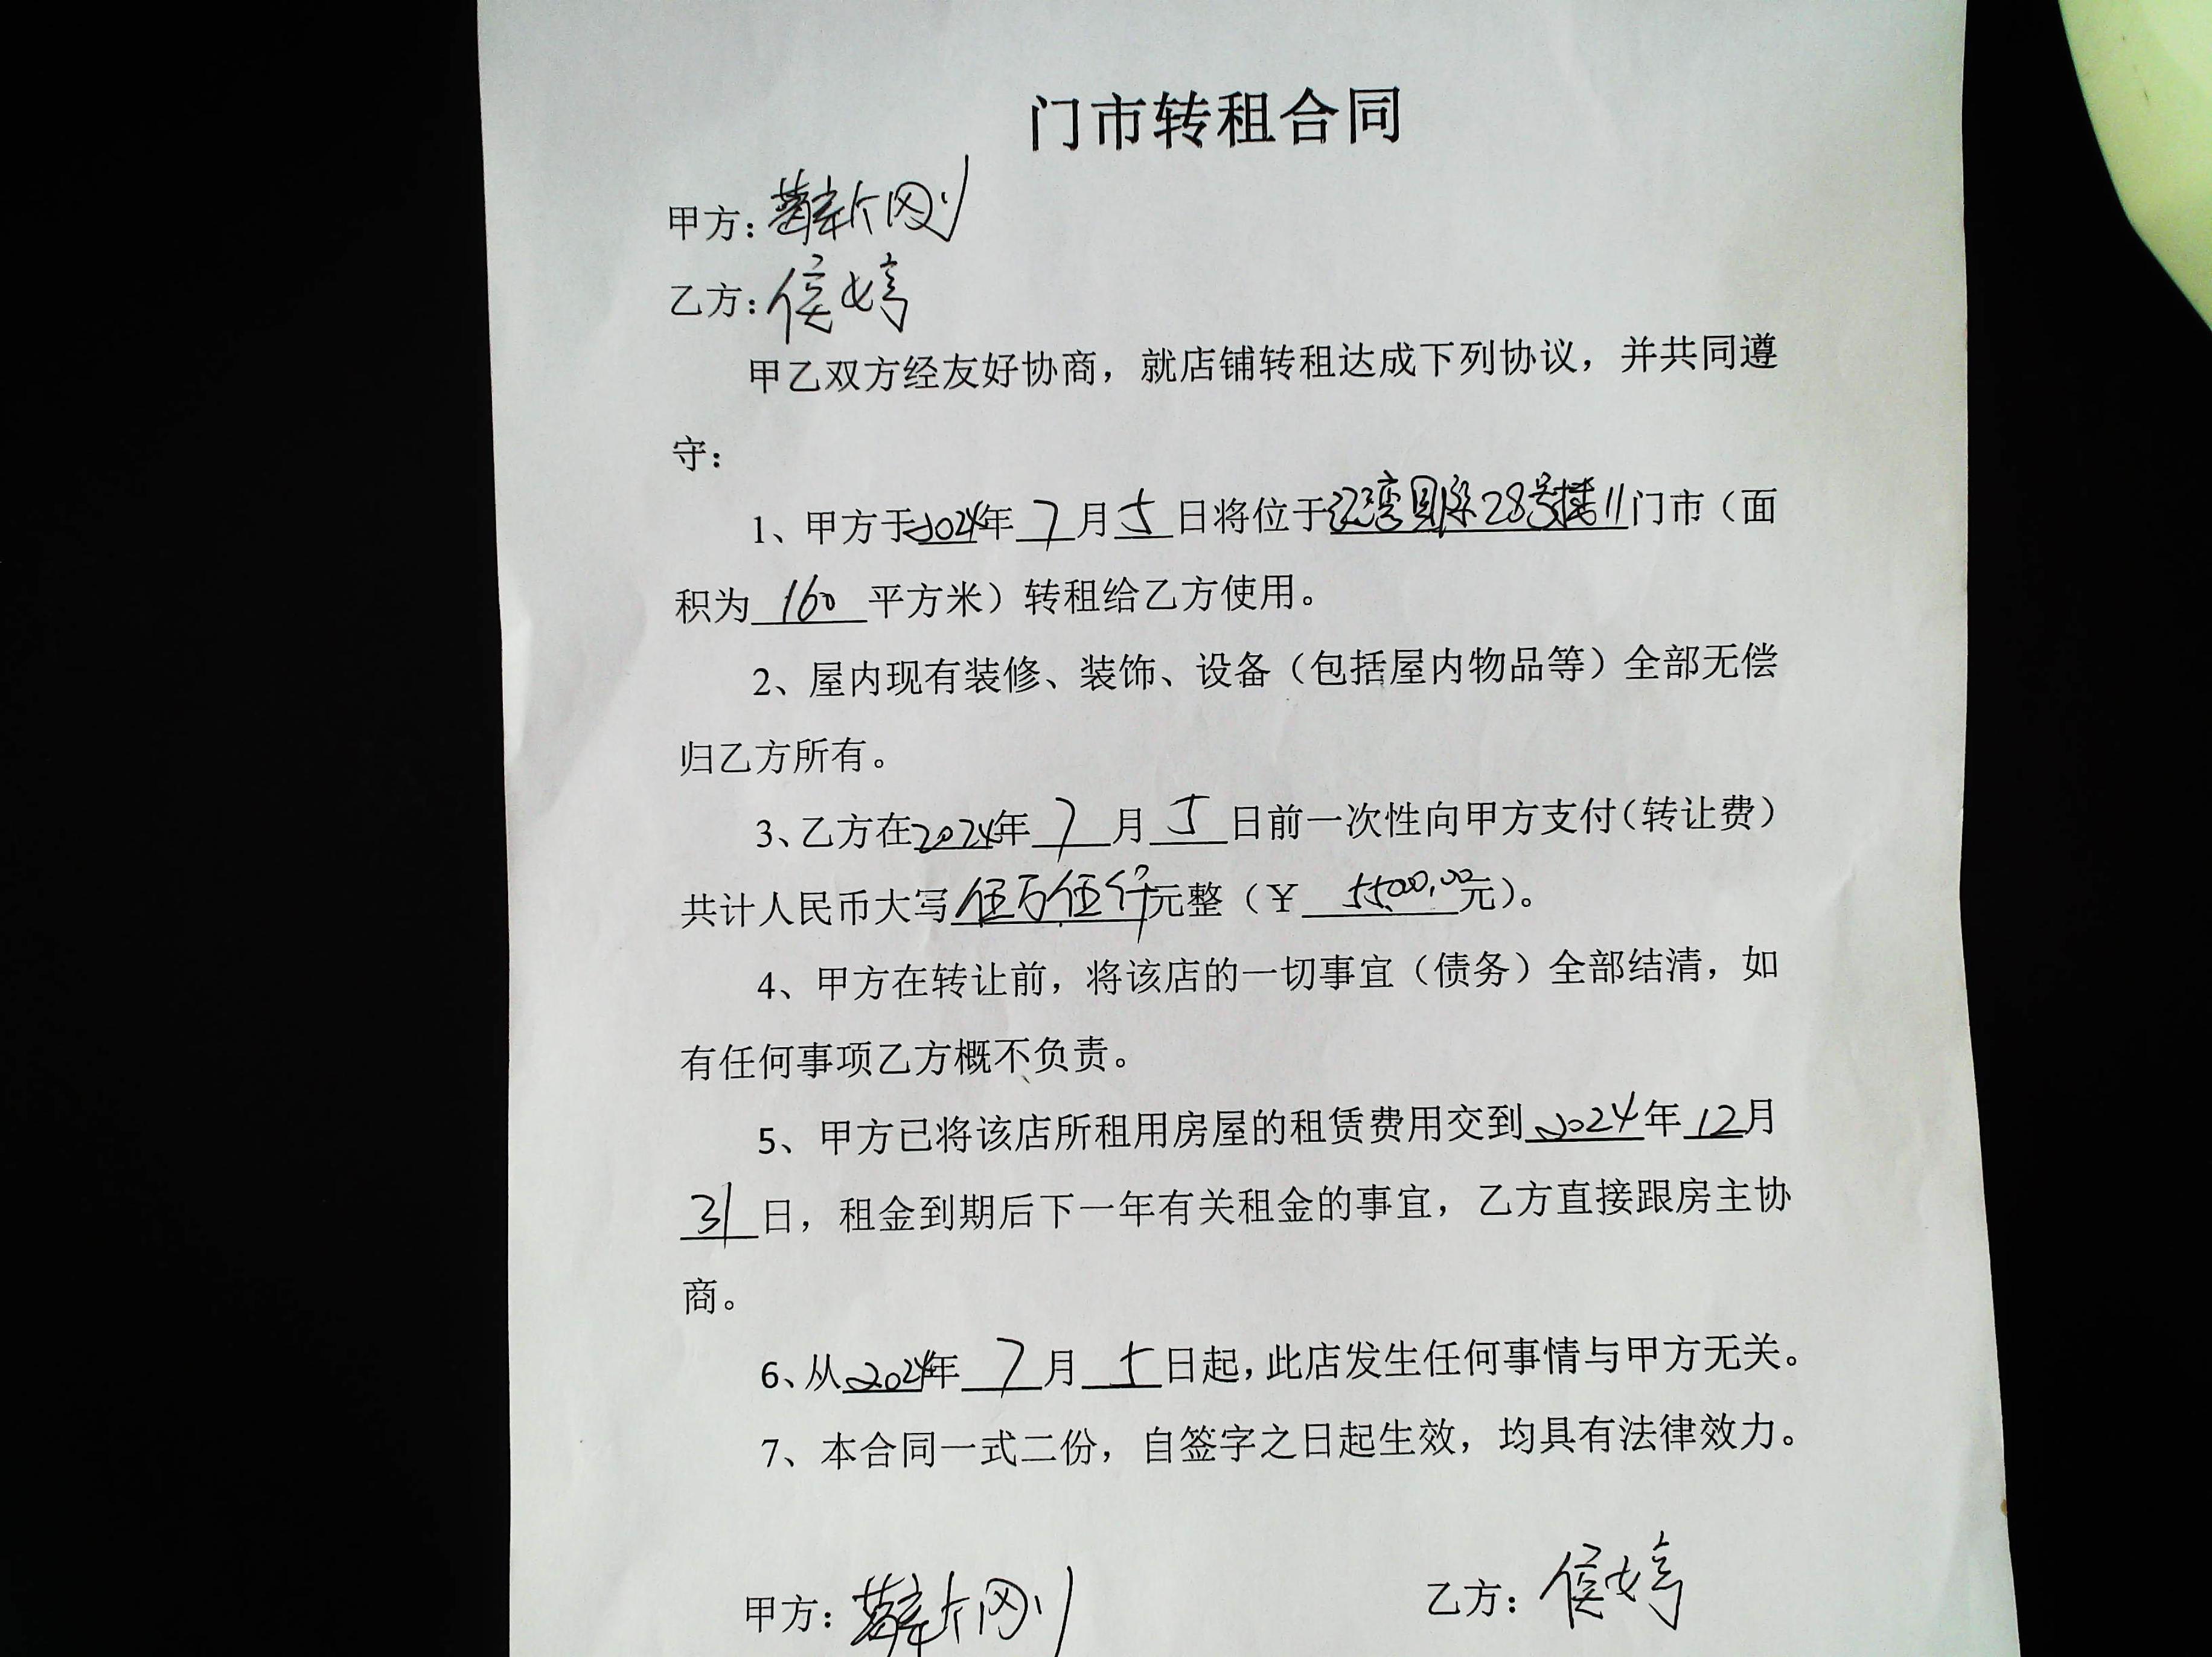 门市转租合同
甲方：薛新刚
乙方：侯婷
甲乙双方经友好协商，就店铺转租达成下列协议，并共同遵
守：
1、甲方于2024年7月5日将位于28号楼11门市（面
积为160平方米）转租给乙方使用。
2、屋内现有装修、装饰、设备（包括屋内物品等）全部无偿
归乙方所有。
3、乙方在2024年7月5日前一次性向甲方支付（转让费）
共计人民币大写伍万伍仟元整（￥元）。
4、甲方在转让前，将该店的一切事宜（债务）全部结清，如
有任何事项乙方概不负责。
5、甲方已将该店所租用房屋的租赁费用交到2024年12月
31日，租金到期后下一年有关租金的事宜，乙方直接跟房主协
商。
6、从2024年7月5日起，此店发生任何事情与甲方无关。
7、本合同一式二份，自签字之日起生效，均具有法律效力。
甲方：薛新刚 乙方：侯婷